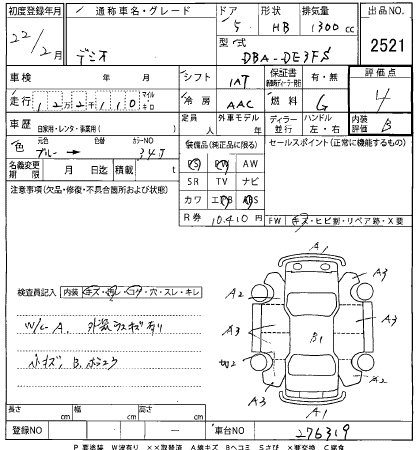 初度登録年月
22/2月
通称車名・グレード
デミオ
ドア 5
形状 HB
排気量 1300cc
型式 DBA-DE3FS
出品NO.
2521
車検 年 月
シフト IAT
保証書 有・無
評価点 4
走行 12万2千110 マイル キロ
冷房 AAC
燃料 G
車歴 自家用・レンタ・事業用( )
定員 人
外車モデル 年
ディーラー 並行
ハンドル 左・右
内装評価 B
色 元色 ブルー→ 色替 カラーNO 34J
名義変更期限 月 日迄
積載 t
装備品(純正品に限る)
PS PW AW
SR TV ナビ
カワ エアB ABS
R券 10,410円
セールスポイント(正常に機能するもの)
注意事項(欠品・修復・不具合箇所および状態)
FW キズ・ヒビ割・リペア跡・X要
検査員記入 内装 キズ・汚レ・コゲ・穴・スレ・キレ
W/L A. 外装 ラスキズ有り
小キズ、B.
A1
A2 A3
A3 B1 A3
A2
A3 A3
A1
長さ cm
幅 cm
高さ cm
登録NO ―
車台NO 276319
P要塗装 W波有り ××取替済 A線キズ Bヘコミ Sサビ ×要交換 C腐食